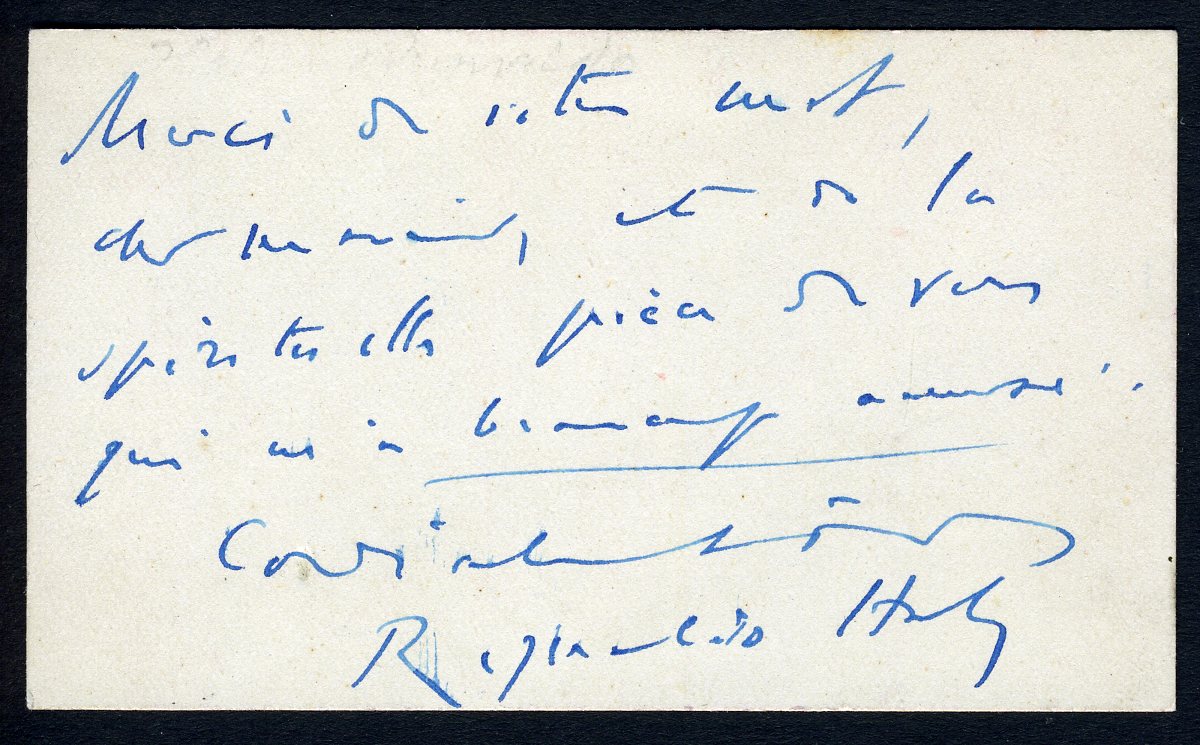 Merci de votre mot,
cher monsieur, et de la
spirituelle pièce de vers
qui m'a beaucoup amusé.
Cordialement à vous
Reynaldo Hahn